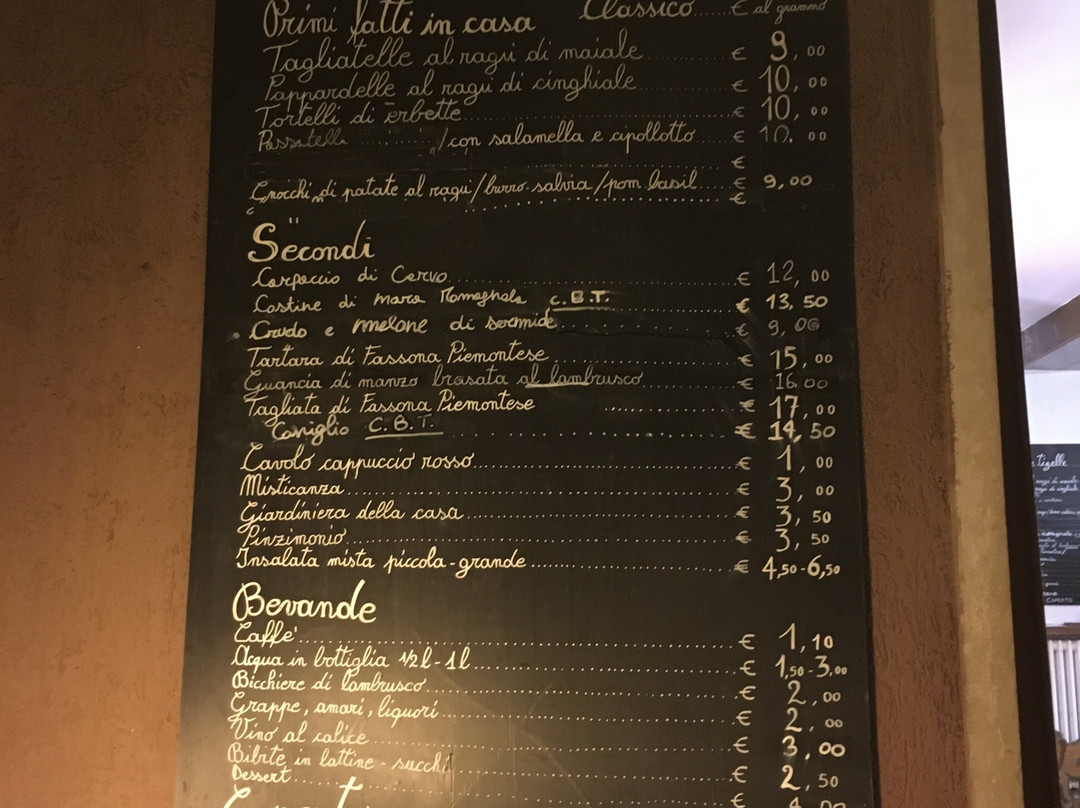 Primi fatti in casa Classico......€ al grammo
Tagliatelle al ragù di maiale..........€ 9,00
Pappardelle al ragù di cinghiale..........€ 10,00
Tortelli di erbette..........€ 10,00
Passatelli /con salamella e cipollotto.....€ 10,00
€
Gnocchi di patate al ragù/burro-salvia/pom. basil....€ 9,00
€
Secondi
Carpaccio di Cervo..........€ 12,00
Costine di mora Romagnola C.B.T. € 13,50
Crudo e melone di sermide..........€ 9,00
Tartara di Fassona Piemontese..........€ 15,00
Guancia di manzo brasata al lambrusco..........€ 16,00
Tagliata di Fassona Piemontese ..........€ 17,00
Coniglio C.B.T. ..........€ 14,50
Cavolo cappuccio rosso..........€ 1,00
Misticanza..........€ 3,00
Giardiniera della casa..........€ 3,50
Pinzimonio..........€ 3,50
Insalata mista piccola-grande..........€ 4,50-6,50
Bevande
Caffe'..........€ 1,10
Acqua in bottiglia 1/2 l - 1 l..........€ 1,50-3,00
Bicchiere di lambrusco..........€ 2,00
Grappe, amari, liquori..........€ 2,00
Vino al calice..........€ 3,00
Bibite in lattine - succhi..........€ 2,50
Dessert..........€
tigelle